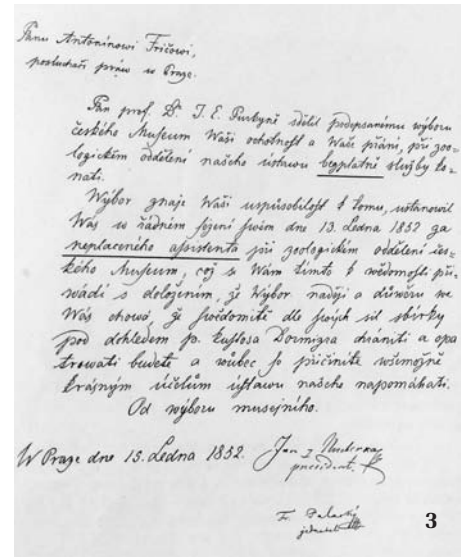 Panu Antonínowi Fričowi,
posluchači práw w Praze.
Pan prof. Dr. J. E. Purkyně sdělil podepsanému wýboru
českého Museum Waši ochotnost a Waše přání, při zoo=
logickém oddělení našeho ústawu bezplatně služby ko=
nati.
Wýbor znaje Waši uspůsobilost k tomu, ustanowil
Wás w řádném sezení swém dne 13. Ledna 1852 za
neplaceného assistenta při zoologickém oddělení čes=
kého Museum, což se Wám tímto k wědomosti při=
wádí s doložením, že Wýbor naději a důwěru we
Wás chowá, že swědomitě dle swých sil sbírky
pod dohledem p. kustosa Dormizra chrániti a opa
trowati budete a wůbec se přičiníte wšemožně
krásným účelům ústawu našeho napomáhati.
Od wýboru musejního.
W Praze dne 15. Ledna 1852.
Jan
president.
F. Palacký
jednatel
3